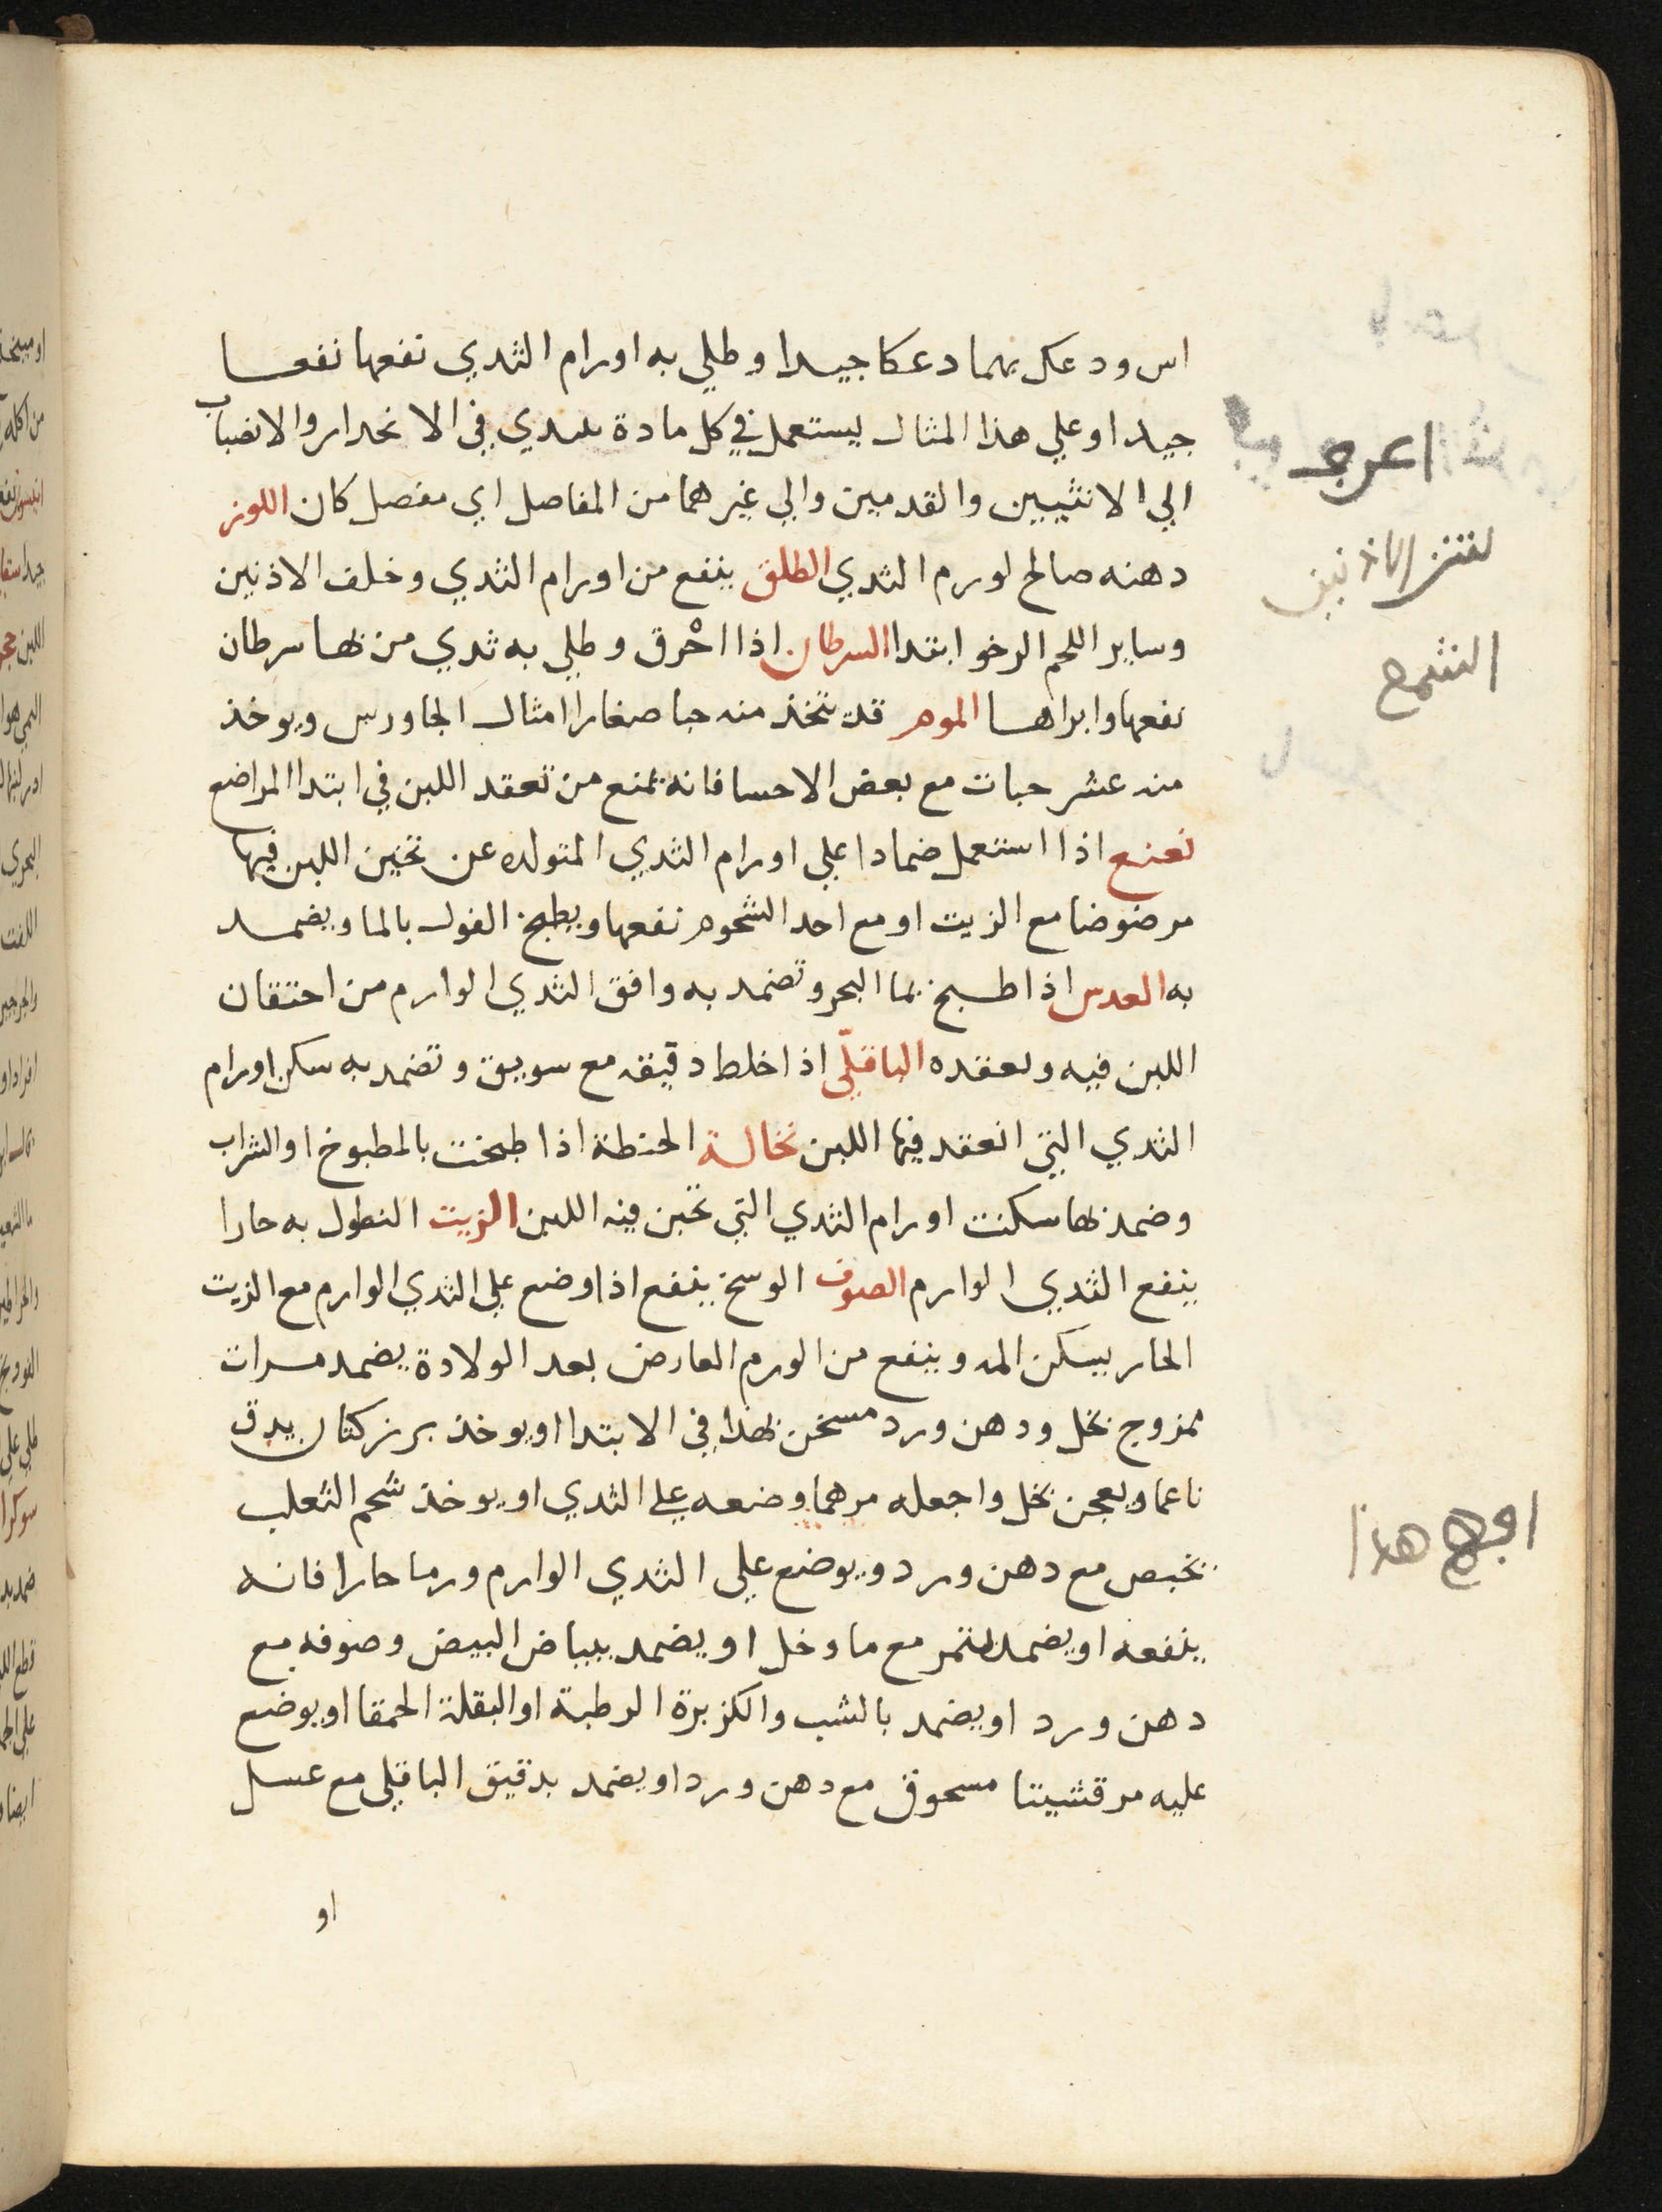 اس ودعك بهما دعكا جيدا وطلي به اورام الثدي نفعها نفعا
جيدا وعلي هذا المثال يستعمل في كل مادة تبتدي في الانحدار والانضباب
الي الانثيين والقدمين والي غيرهما من المفاصل اي مفصل كان اللوز
دهنه صالح لورم الثدي الطلق ينفع من اورام الثدي وخلف الاذنين
وساير اللحم الرخو ابتدا السرطان اذا احْرق وطلي به ثدي من بها سرطان
نفعها وابراها الموم قد يتخذ منه حبا صغارا امثال الجاورس ويوخذ
منه عشر حبات مع بعض الاحسا فانه يمنع من تعقد اللبن في ابتدا المراضع
نعنع اذا استعمل ضمادا علي اورام الثدي المتولده عن تخين اللبن فيها
مرضوضا مع الزيت او مع احد الشحوم نفعها ويطبخ الفول بالما ويضمد
به العدس اذا طبخ بما البحر وتضمد به وافق الثدي الوارم من احتقان
اللبن فيه وتعقده الباقلّي اذا خلط دقيقه مع سويق وتضمد به سكن اورام
الثدي التي انعقد فيها اللبن نخالة الحنطة اذا طبخت بالمطبوخ او الشراب
وضمد بها سكنت اورام الثدي التي تجبن فيه اللبن الزيت النطول به حارا
ينفع الثدي الوارم الصوف الوسخ ينفع اذا وضع علي الثدي الوارم مع الزيت
الحار يسكن المه وينفع من الورم العارض بعد الولادة يضمد مرات
ممزوج بخل ودهن ورد مسخن بهذا في الابتدا او يوخذ بزر كتان يدق
ناعما ويعجن بخل واجعله مرهما وضعه علي الثدي او يوخذ شحم الثعلب
يخبص مع دهن ورد ويوضع علي الثدي الوارم ورما حارا فانه
ينفعه او يضمد بتمر مع ما وخل او يضمد ببياض البيض وصوفه مع
دهن ورد او يضمد بالشب والكزبرة الرطبة او البقلة الحمقا او يوضع
عليه مرقشيتا مسحوق مع دهن ورد او يضمد بدقيق الباقلي مع عسل
او
الاذنين
هذا